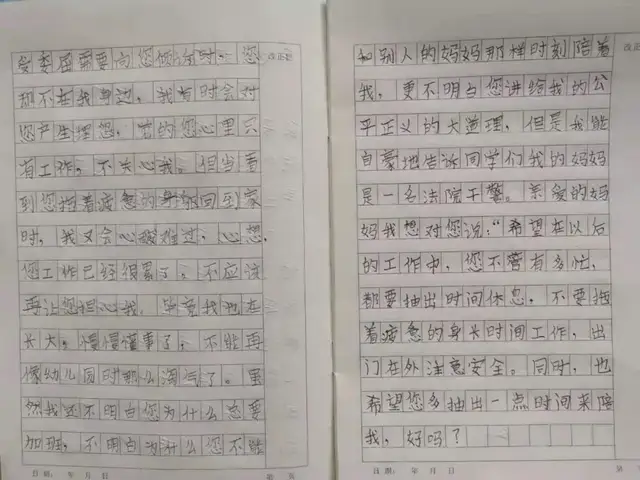 受委屈需要向您倾诉时，您
却不在我身边，我有时会对
您产生埋怨，觉的您心里只
有工作，不关心我。但当看
到您拖着疲惫的身躯回到家
时，我又会心酸难过，心想，
您工作已经很累了，不应该
再让您担心我，毕竟我也在
长大，慢慢懂事了，不能再
像幼儿园时那么淘气了。虽
然我还不明白您为什么总要
加班，不明白为什么您不能
日期： 年 月 日 第 页
改正栏
和别人的妈妈那样时刻陪着
我，更不明白您讲给我的公
平正义的大道理，但是我能
自豪地告诉同学们我的妈妈
是一名法院干警。亲爱的妈
妈我想对您说：“希望在以后
的工作中，您不管有多忙，
都要抽出时间休息，不要拖
着疲惫的身长时间工作，出
门在外注意安全。同时，也
希望您多抽出一点时间来陪
我，好吗？
日期： 年 月 日